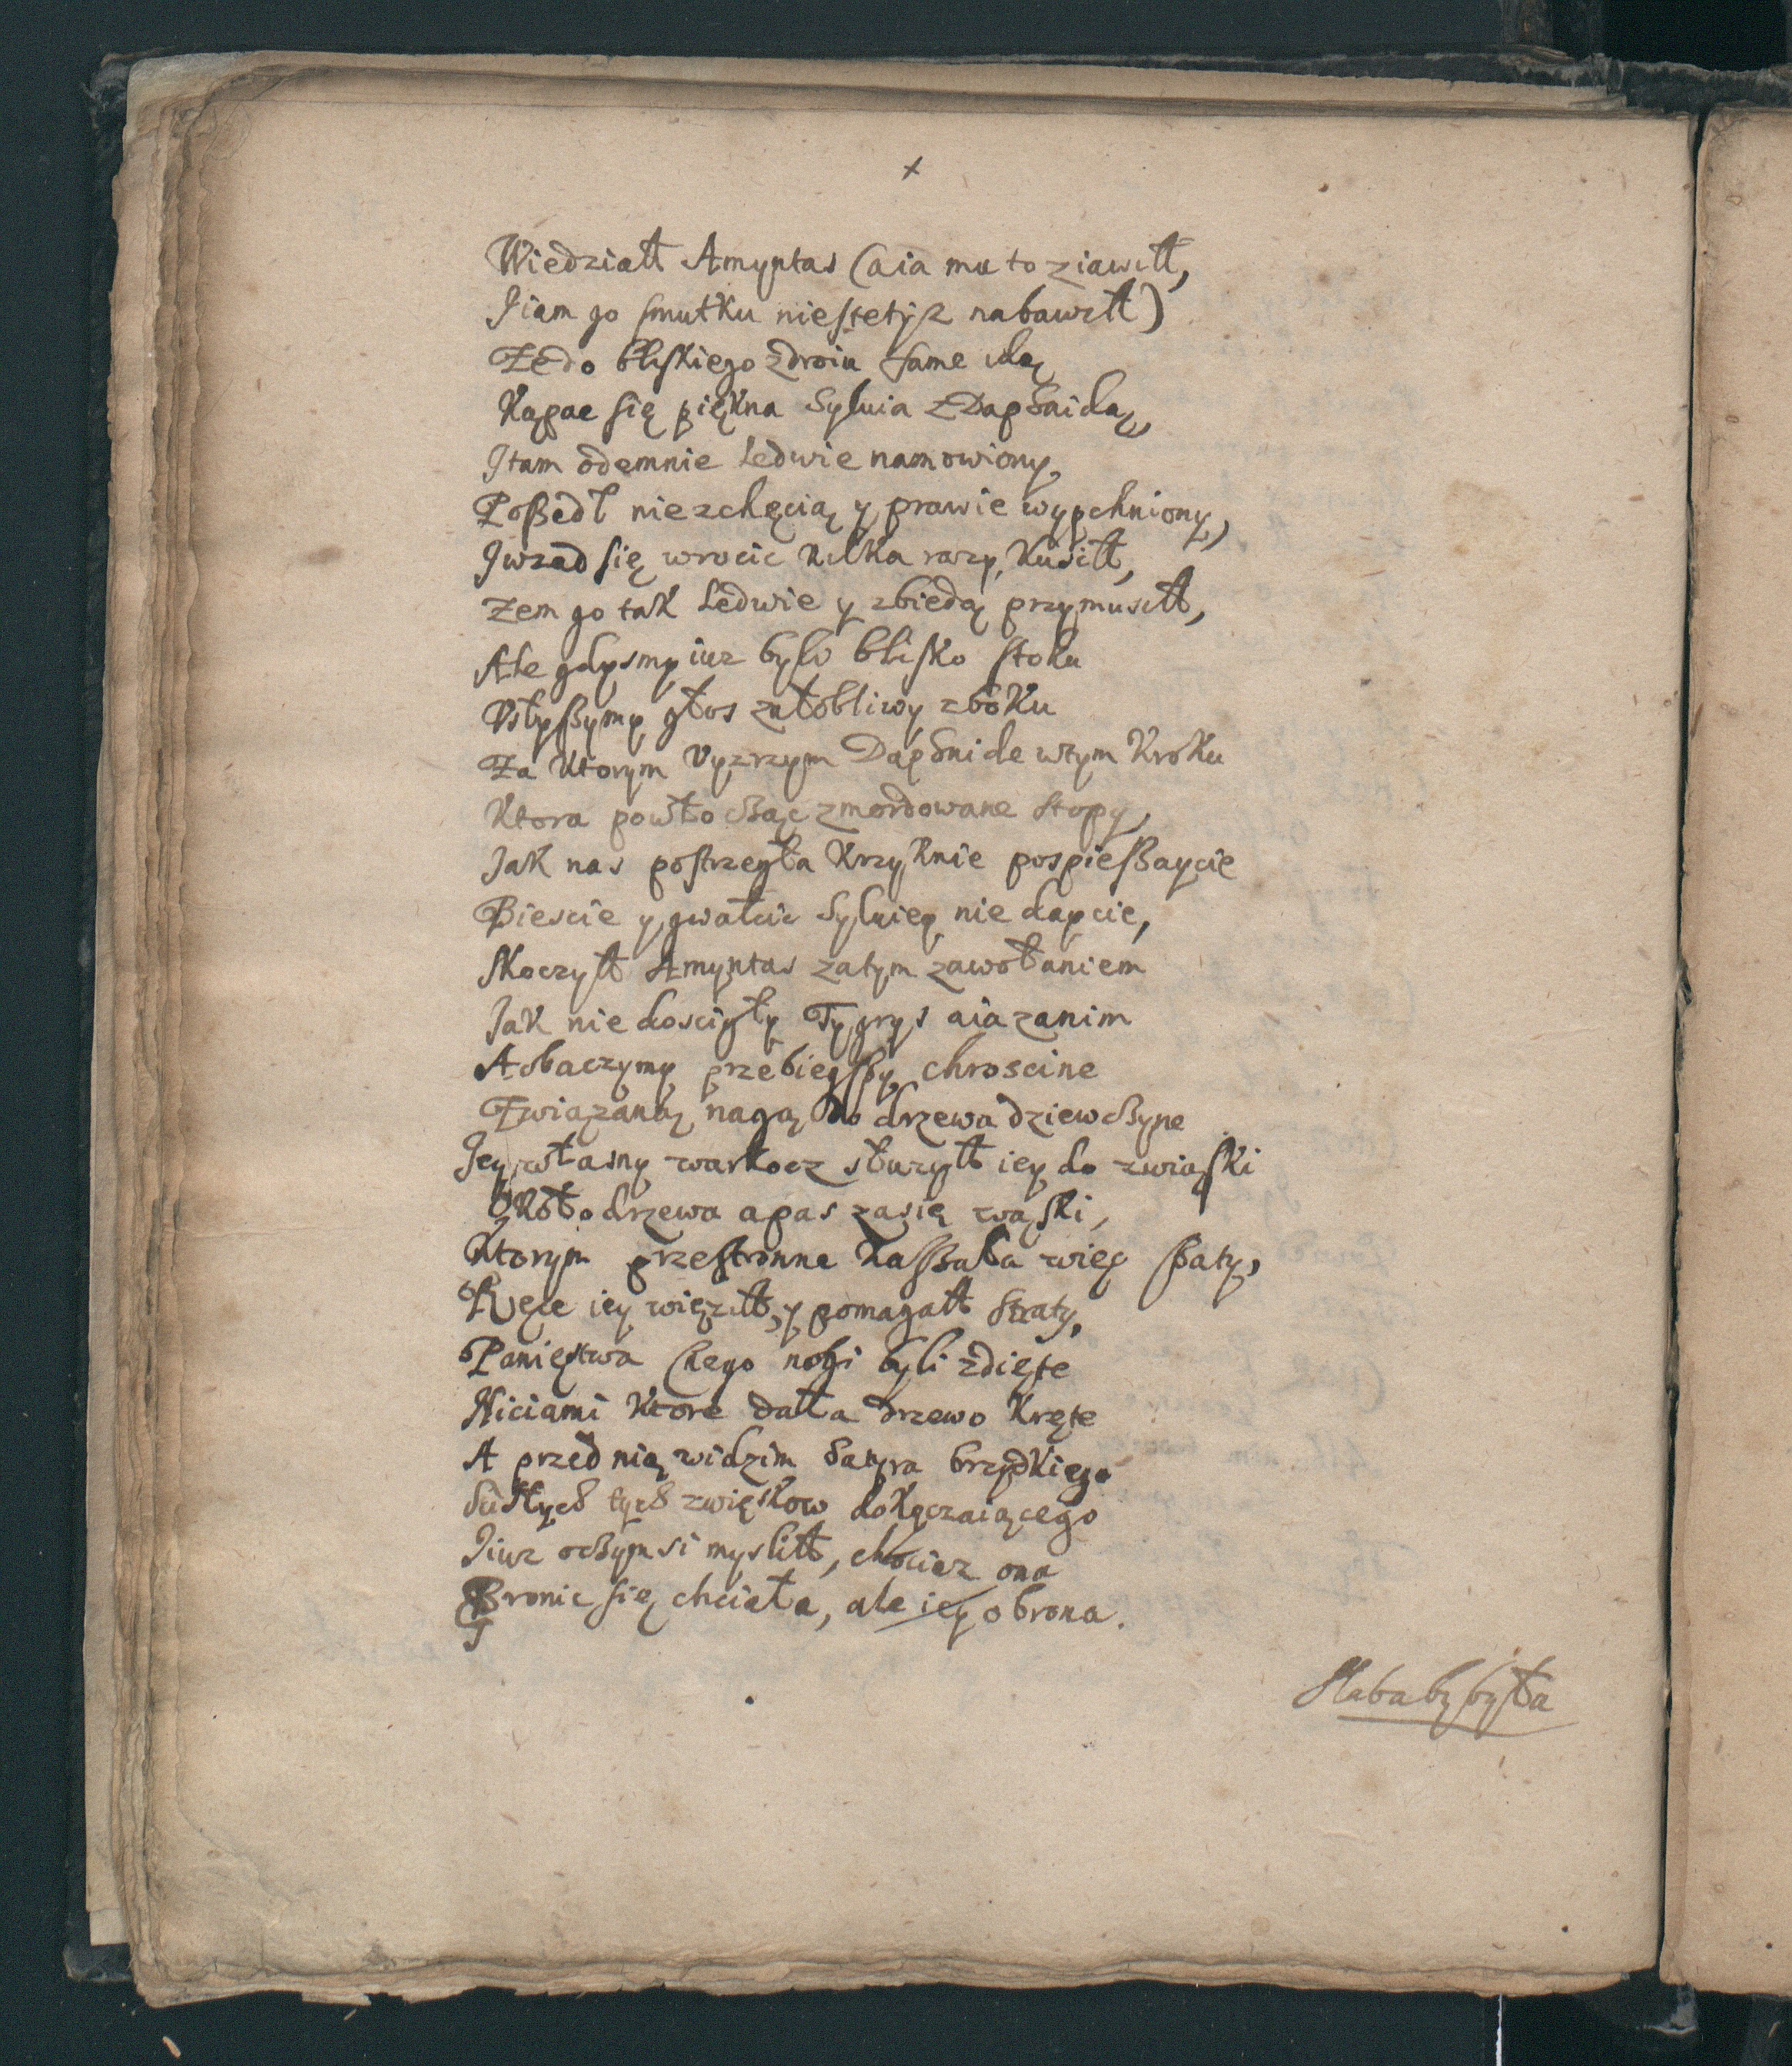 x
Wiedziałł Amyntas (aia mu to ziawiłł,
Jiam go smutku niestetysz nabawiłł)
Ze do bliskiego zdroiu same idą
Kąpac się piękna Sylwia z Daphnidą,
Jtam odemnie Ledwie namowiony
Poszedł nie zchęcią y prawie wypchniony,
Jwzad się wrocic kilka razy, kusiłł,
Zem go tak Ledwie y zbiedą przymusiłł,
Ale gdysmy iuz byli blisko stoku
Vsłyszymy głos załobliwy zboku
Za ktorym vyzrzym Daphnide wtym kroku
Ktora powłocząc zmordowane stopy,
Jak nas postrzegła krzyknie pospieszaycie
Biescie y gwałcic Sylwięy nie daycie,
Skoczyłł Amyntas zatym zawołaniem
Jak niedoscigły Tygrys aiazanim
Aobaczymy przebiegszy chroscine
Związaną nagą do drzewa dziewczyne
Jey własny warkocz słuzyłł iey do zwiąski
Około drzewa apas zasię wąski,
Ktorym przestronne kassała więc szaty,
Ręce iey więziłł, y pomagałł straty,
Panięstwa nogi byli zdięte
Niciami ktore dałła drzewo kręte
A przed nią widzim Satyra brzydkiego
tych zwięskow dokączaiącego
Jiuz oczym si myslłł, chociez ona
Bronic się chciała, ale iey obrona.
Słaba by była